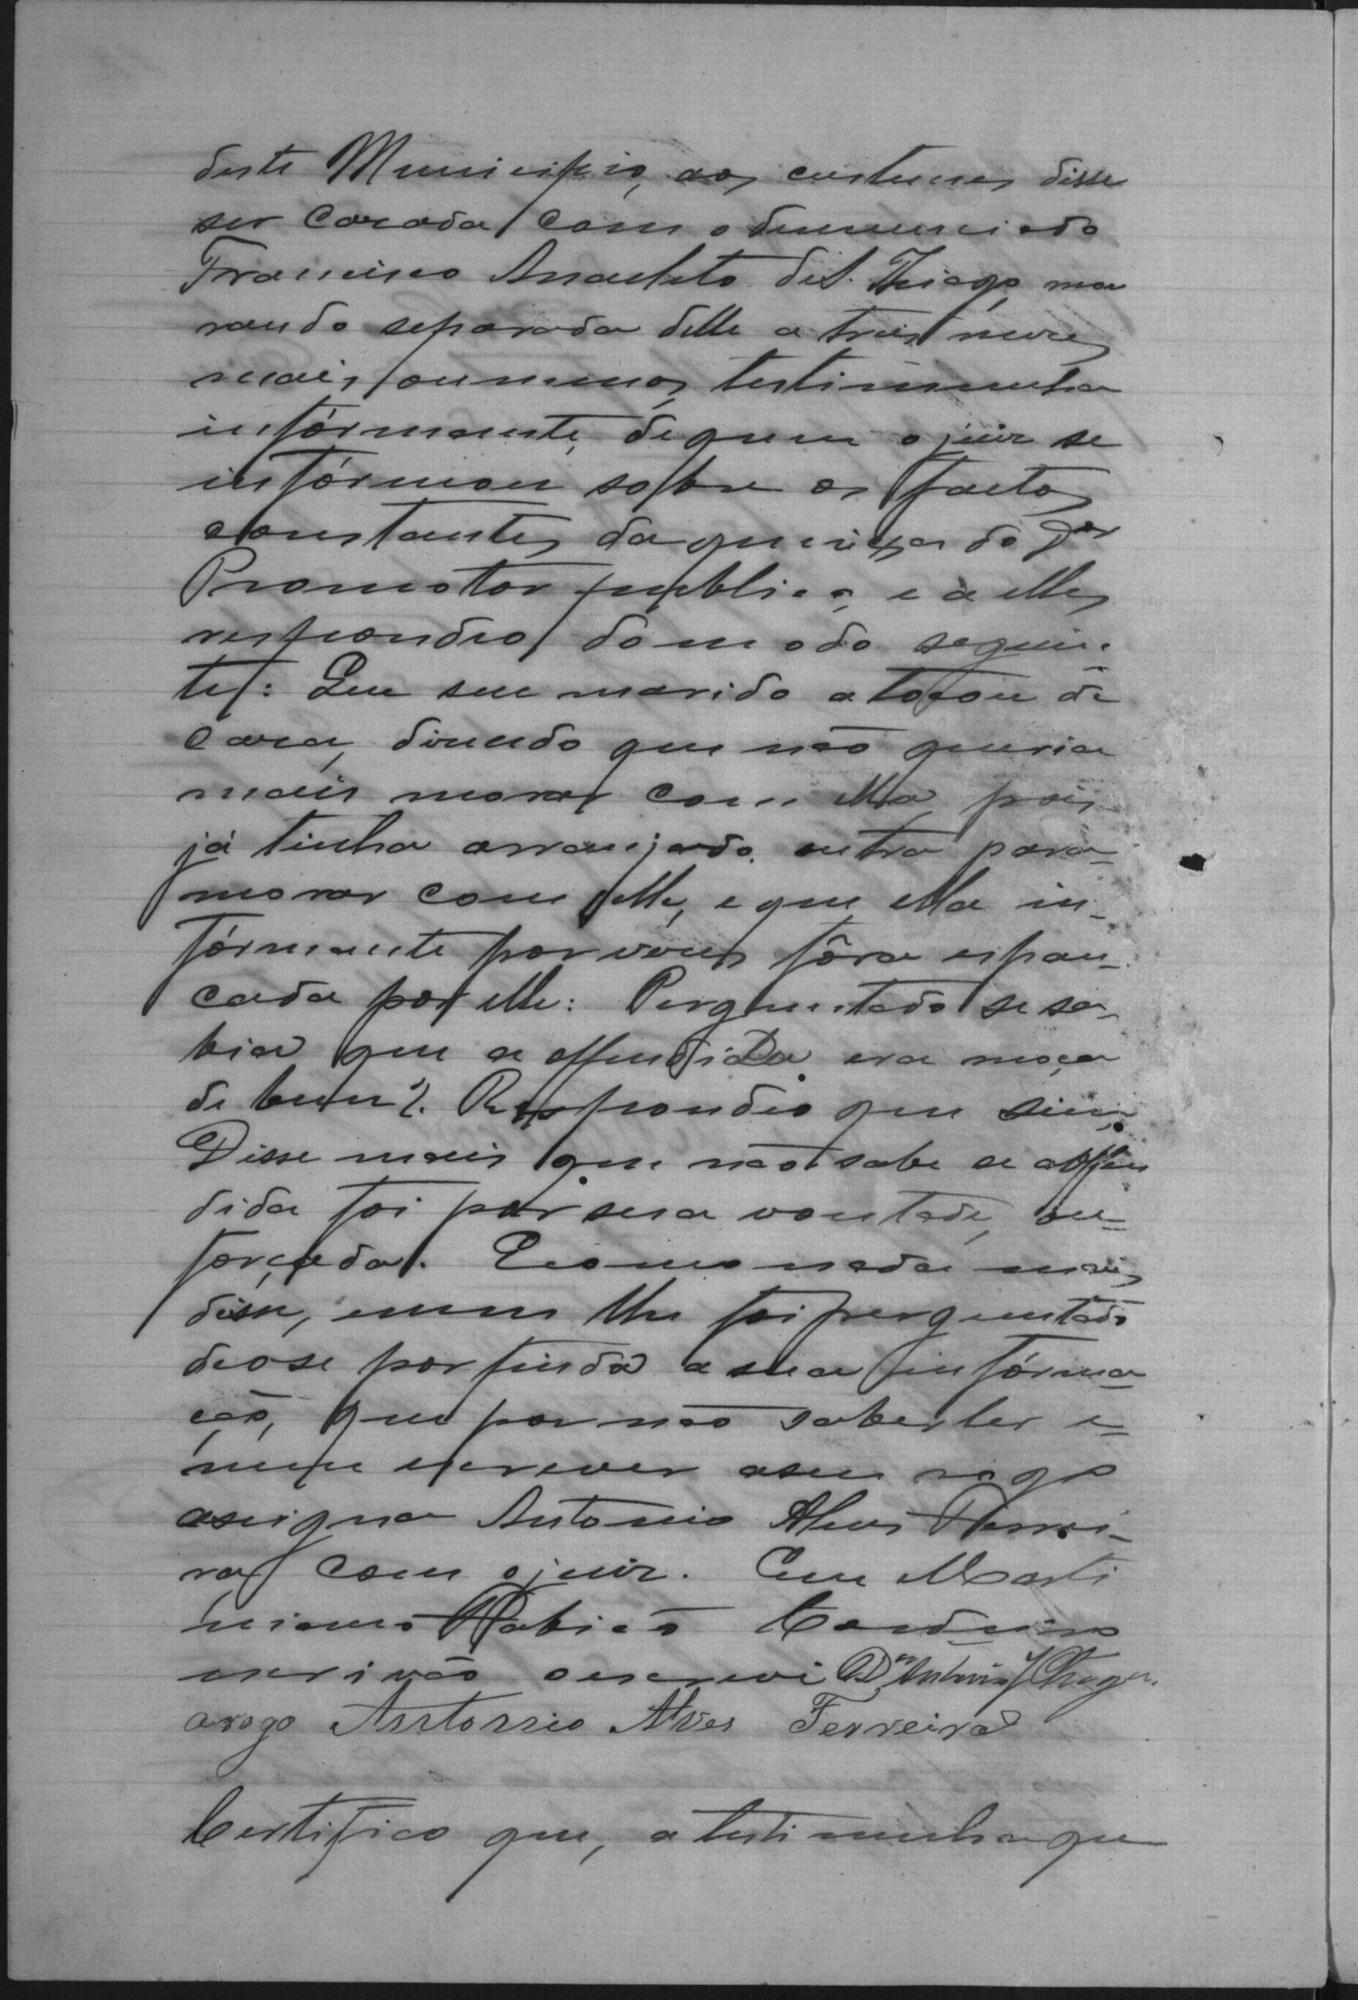 deste Municipio, aos custumes disse
ser casada com o denunciado
Francisco Anacleto de S. Thiago, mo
rando separada delle a tres meses
mais, ou menos, testimunha
informante, de quem o juiz se
informou sobre os factos
constantes da queixa do Dor
Promotor publico, e a elles
respondeo do modo seguin-
te: Que seu marido a tocou de
casa, disendo que não queria
mais morar com ella, pois
já tinha arranjado outra para
morar com elle, e que ella in-
formante por veses fôra espan-
cada por elle: Perguntado se sa-
bia que a offendida era moça
de bem?. Respondeo que sim.
Disse mais que não sabe se a offen
dida foi por sua vontade, ou
forçada. E como nada mais
disse, e nem lhe foi perguntado
deose por finda a sua informa
ção, que por não saber ler e
nem escrever a seu rogo
assigna Antonio Alves Ferrei-
ra com o juiz. Eu Marti
niano Cardoso
escrivão o escrevi
arogo Antonio Alves Ferreira
Certifico que, a testimunha que